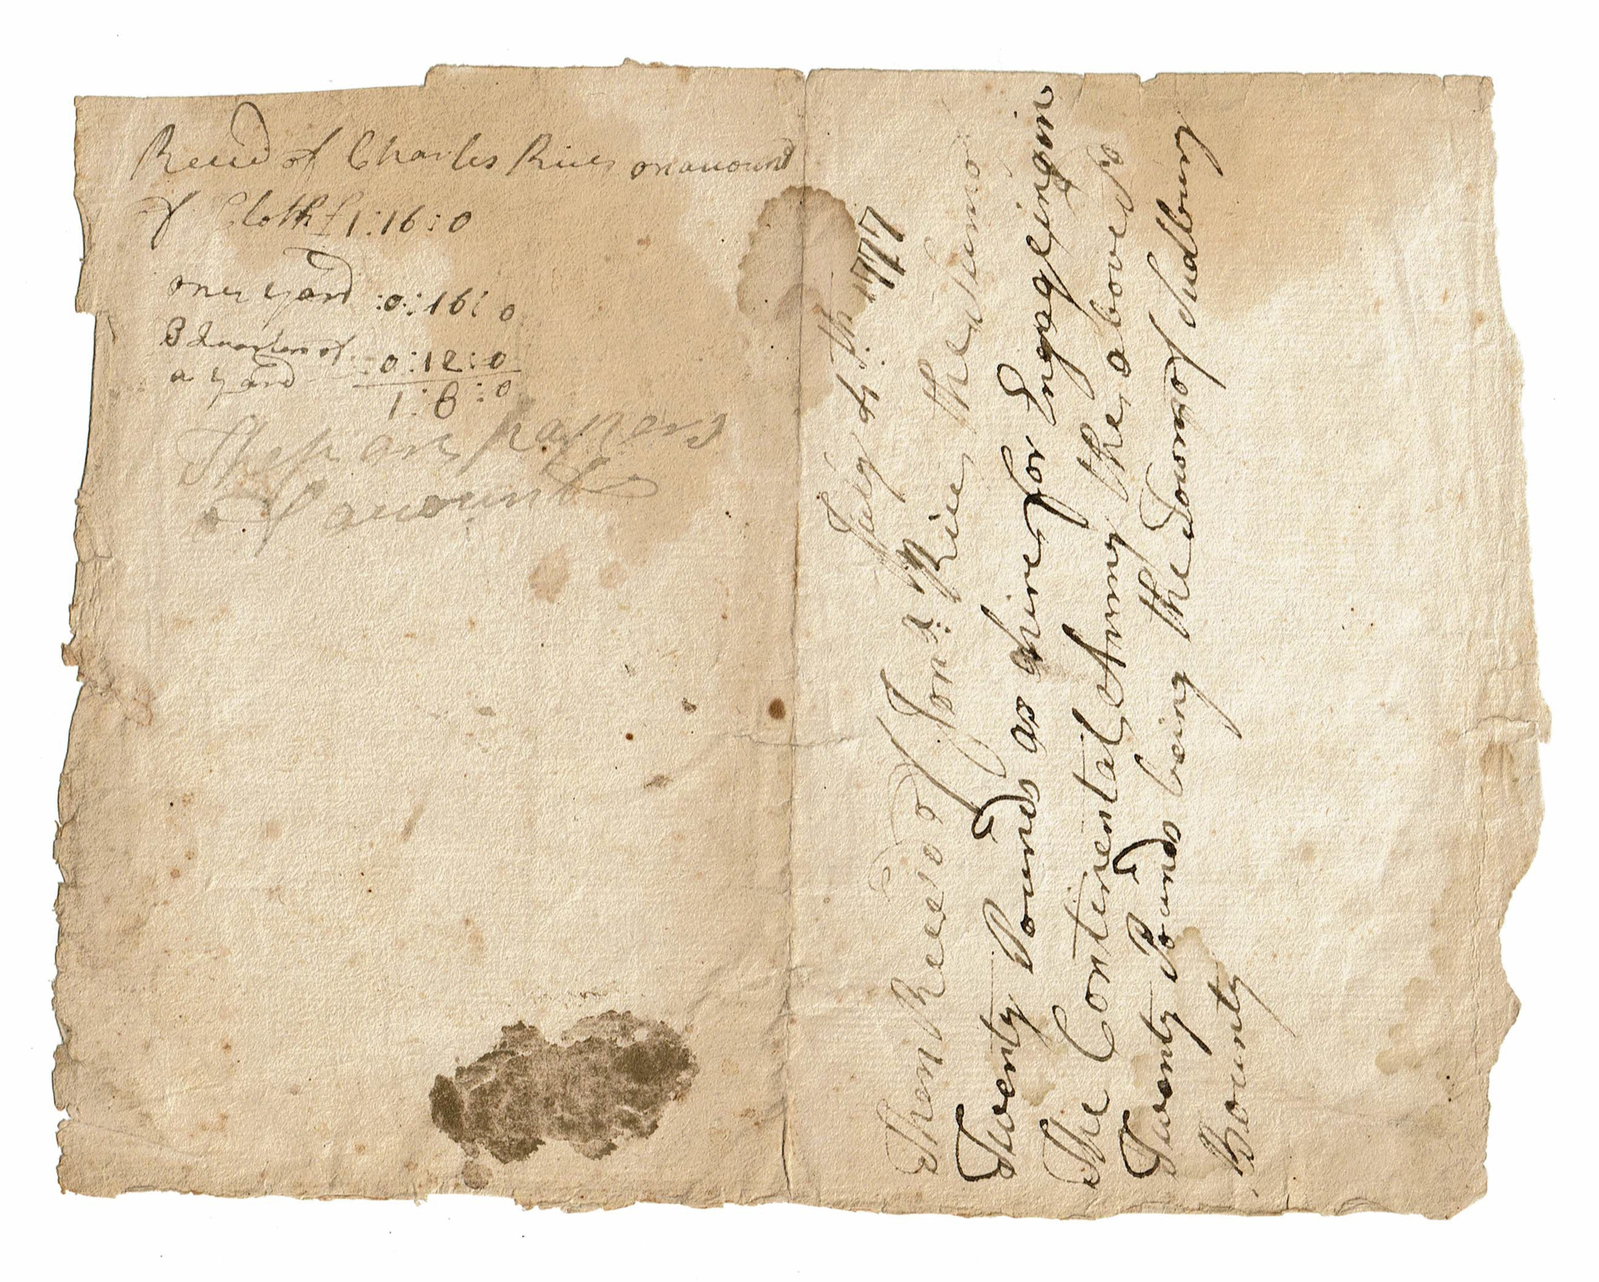 Receud of Charles Rice on acount
of Cloth £1:16:0
one yard :0:16:0
3 Quarters of
a yard :0:12:0
1:8:0
These are papers
of acount
July ye 7th 1777
Then Received of Jona: Rice the sum of
Twenty Pounds as a hire for Engageing in
the Continental Army the above sd
Twenty Pounds being the Town of Sudbury
Bounty